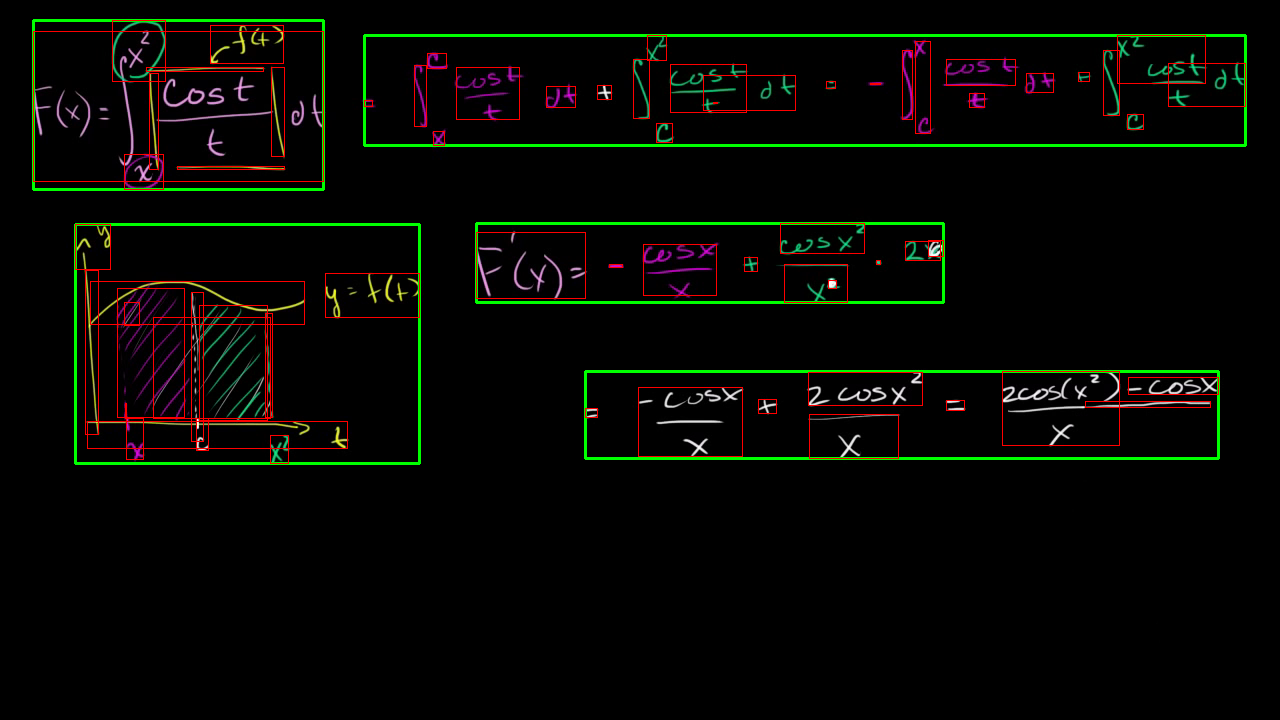 f(t)
F(x) = ∫_x^{x^2} cos t / t dt
= ∫_x^c cos t / t dt + ∫_c^{x^2} cos t / t dt = - ∫_c^x cos t / t dt + ∫_c^{x^2} cos t / t dt
y
y = f(t)
x c x^2 t
F'(x) = - cos x / x + cos x^2 / x^2 · 2x
= -cos x / x + 2 cos x^2 / x = 2cos(x^2) - cos x / x